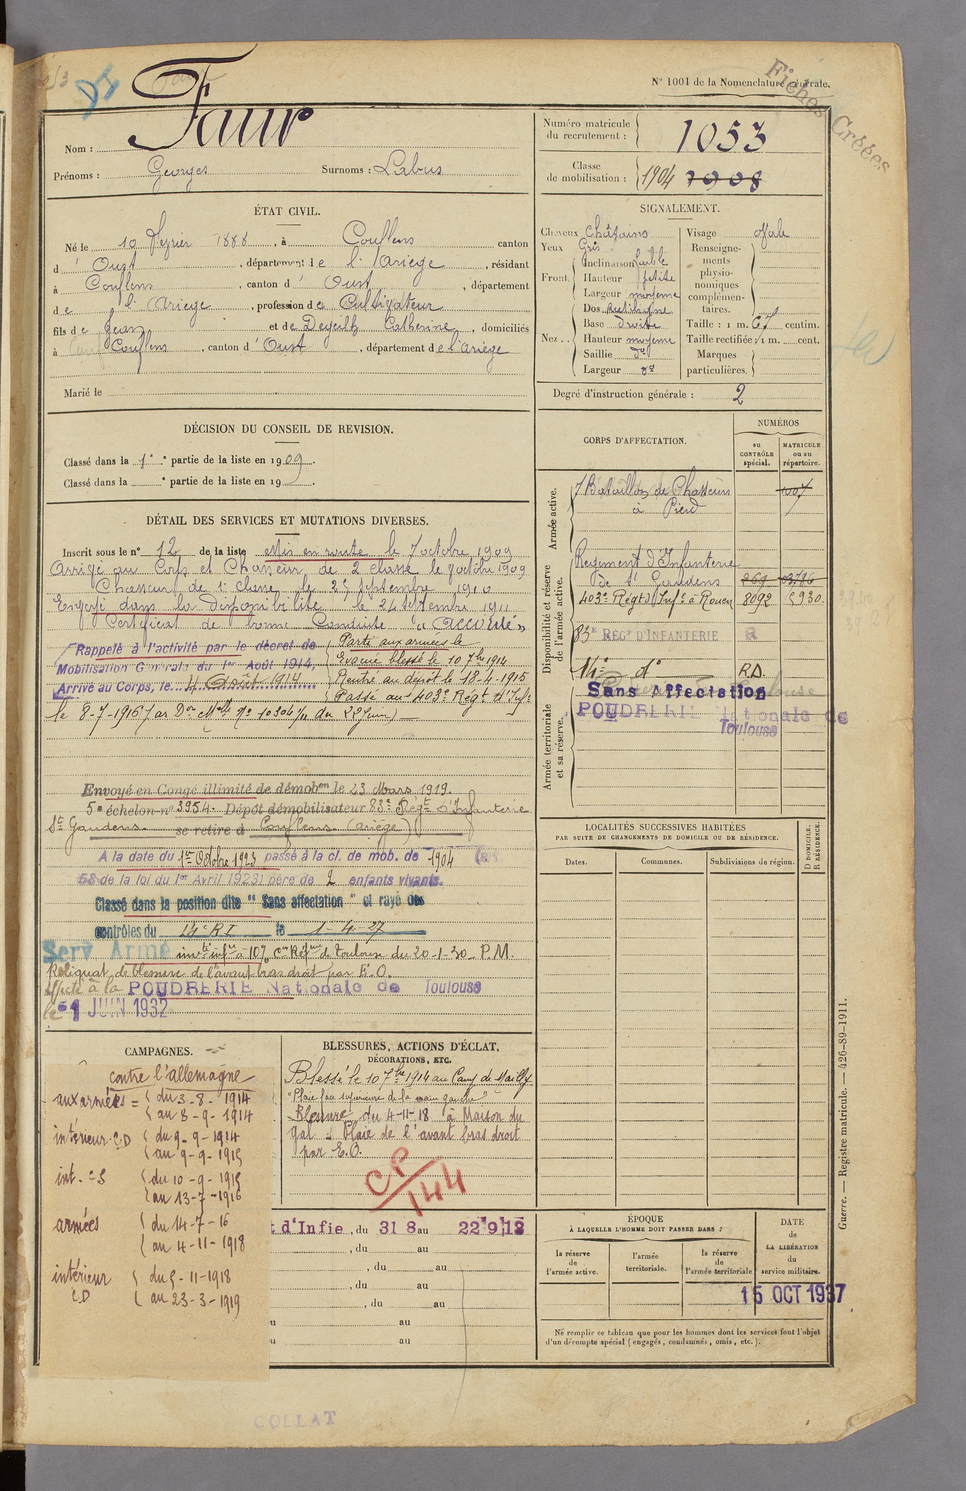 N° 1001 de la Nomenclature générale.
Fiches Créées
Nom : Faur
Prénoms : Georges Surnoms : Labus
Numéro matricule du recrutement : 1053
Classe de mobilisation : 1904 1908
ÉTAT CIVIL.
Né le 10 Février 1888, à Couflens canton
d'Oust, département de l'Ariège, résidant
à Couflens, canton d'Oust, département
de l'Ariège, profession de Cultivateur
fils de Jean et de Dejeilh Catherine, domiciliés
à Couflens, canton d'Oust, département de l'Ariège
Marié le
SIGNALEMENT.
Cheveux Châtains
Yeux Gris
Front. Inclinaison faible
Hauteur petite
Largeur moyenne
Nez. Dos rectiligne
Base droite
Hauteur moyenne
Saillie dº
Largeur dº
Visage ovale
Renseignements physionomiques complémentaires.
Taille : 1 m. 67 centim.
Taille rectifiée : 1 m. cent.
Marques particulières.
Degré d'instruction générale : 2
DÉCISION DU CONSEIL DE REVISION.
Classé dans la 1e partie de la liste en 1909.
Classé dans la ° partie de la liste en 19 .
DÉTAIL DES SERVICES ET MUTATIONS DIVERSES.
Inscrit sous le n° 12 de la liste Mis en route le 7 octobre 1909
Arrivé au Corps et Chasseur de 2 classe le 9 octobre 1909
Chasseur de 1e Classe le 25 septembre 1910
Envoyé dans la disponibilité le 24 septembre 1911
Certificat de bonne Conduite "accordé"
Rappelé à l'activité par le décret de
Mobilisation Générale du 1er Août 1914,
Arrivé au Corps, le 4 Août 1914
Parti aux armées le
Evacué blessé le 10 7bre 1914
Rentré au dépôt le 18-4-1915
Passé au 403e Régt d'Infie
le 8-7-1916 par Don Melle No 10304/11 du 22 juin
Envoyé en Congé illimité de démobon le 23 Mars 1919.
5e échelon n° 3954. Dépôt démobilisateur 83e Régt d'Infanterie
St Gaudens se retire à Couflens (Ariège)
A la date du 1er Octobre 1923 passé à la cl. de mob. de 1904 (art
58 de la loi du 1er Avril 1923) père de 2 enfants vivants.
Classé dans la position dite "Sans affectation" et rayé des
contrôles du 14e RI le 1-4-27
Serv Armé invté infre à 10% Con Réfme de Toulouse du 20-1-30 P.M.
Reliquat de blessure de l'avant bras droit par E.O.
affecté à la POUDRERIE Nationale de Toulouse
le 1 JUIN 1932
CORPS D'AFFECTATION.
NUMÉROS
au CONTRÔLE spécial.
MATRICULE ou au répertoire.
Armée active.
7 Bataillon de Chasseurs
à Pied
Disponibilité et réserve de l'armée active.
Régiment d'Infanterie
De St Gaudens 269
403e Régt d'Infie à Rouen 8092 5930
83e REGt D'INFANTERIE
14e dº R.D.
Armée territoriale et sa réserve.
Sans Affectation
POUDRERIE Nationale de
Toulouse
LOCALITÉS SUCCESSIVES HABITÉES
PAR SUITE DE CHANGEMENTS DE DOMICILE OU DE RÉSIDENCE.
Dates. Communes. Subdivisions de région. D DOMICILE. R RÉSIDENCE.
CAMPAGNES.
contre l'allemagne
aux armées = du 3-8-1914
au 8-9-1914
intérieur CD du 9-9-1914
au 9-9-1915
int. CS du 10-9-1915
au 13-7-1916
armées du 14-7-16
au 4-11-1918
intérieur CD du 5-11-1918
au 23-3-1919
BLESSURES, ACTIONS D'ÉCLAT, DÉCORATIONS, ETC.
Blessé le 10 7bre 1914 au Camp de Mailly
"Plaie face supérieure de la main gauche"
Blessure du 4-11-18 à Maison du
gal : Plaie de l'avant bras droit
par E.O.
CP/144
t d'Infie, du 31 8 au 22 9 12
, du au
, du au
, du au
au
au
ÉPOQUE
À LAQUELLE L'HOMME DOIT PASSER DANS :
la réserve de l'armée active.
l'armée territoriale.
la réserve de l'armée territoriale
DATE de LA LIBÉRATION du service militaire.
15 OCT 1937
Ne remplir ce tableau que pour les hommes dont les services font l'objet
d'un décompte spécial (engagés, condamnés, omis, etc.).
Guerre. — Registre matricule. — 426-89-1911.
COLLAT